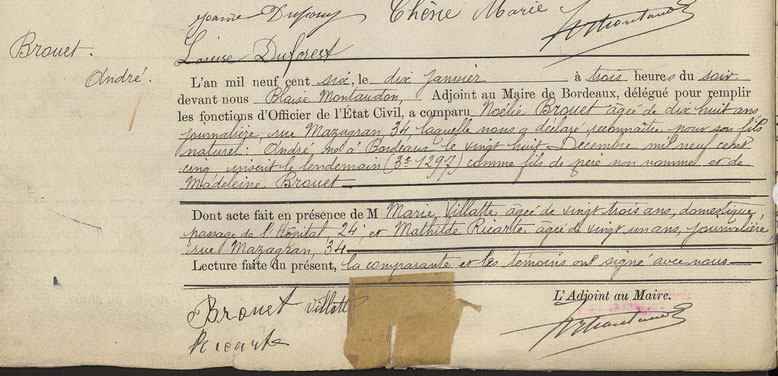 Jeanne Dupouy Chêne Marie
Louise Duforest
Brouet.
André.
L'an mil neuf cent six, le dix Janvier à trois heures du soir
devant nous Blaise Montaudon, Adjoint au Maire de Bordeaux, délégué pour remplir
les fonctions d'Officier de l'État Civil, a comparu Noélie Brouet âgée de dix huit ans
journalière, rue Mazagran, 34 laquelle nous a déclaré reconnaître pour son fils
naturel: André né à Bordeaux le vingt huit Décembre mil neuf cent
cinq inscrit le lendemain (3e 1297) comme fils de père non nommé et de
Madeleine Brouet
Dont acte fait en présence de M Marie Villatte âgée de vingt trois ans, domestique
passage de l'Hôpital, 24, et Mathilde Ricarte âgée de vingt un ans, journalière
rue Mazagran, 34
Lecture faite du présent, la comparante et les témoins ont signé avec nous
Brouet Villatte
L'Adjoint au Maire.
Ricarte